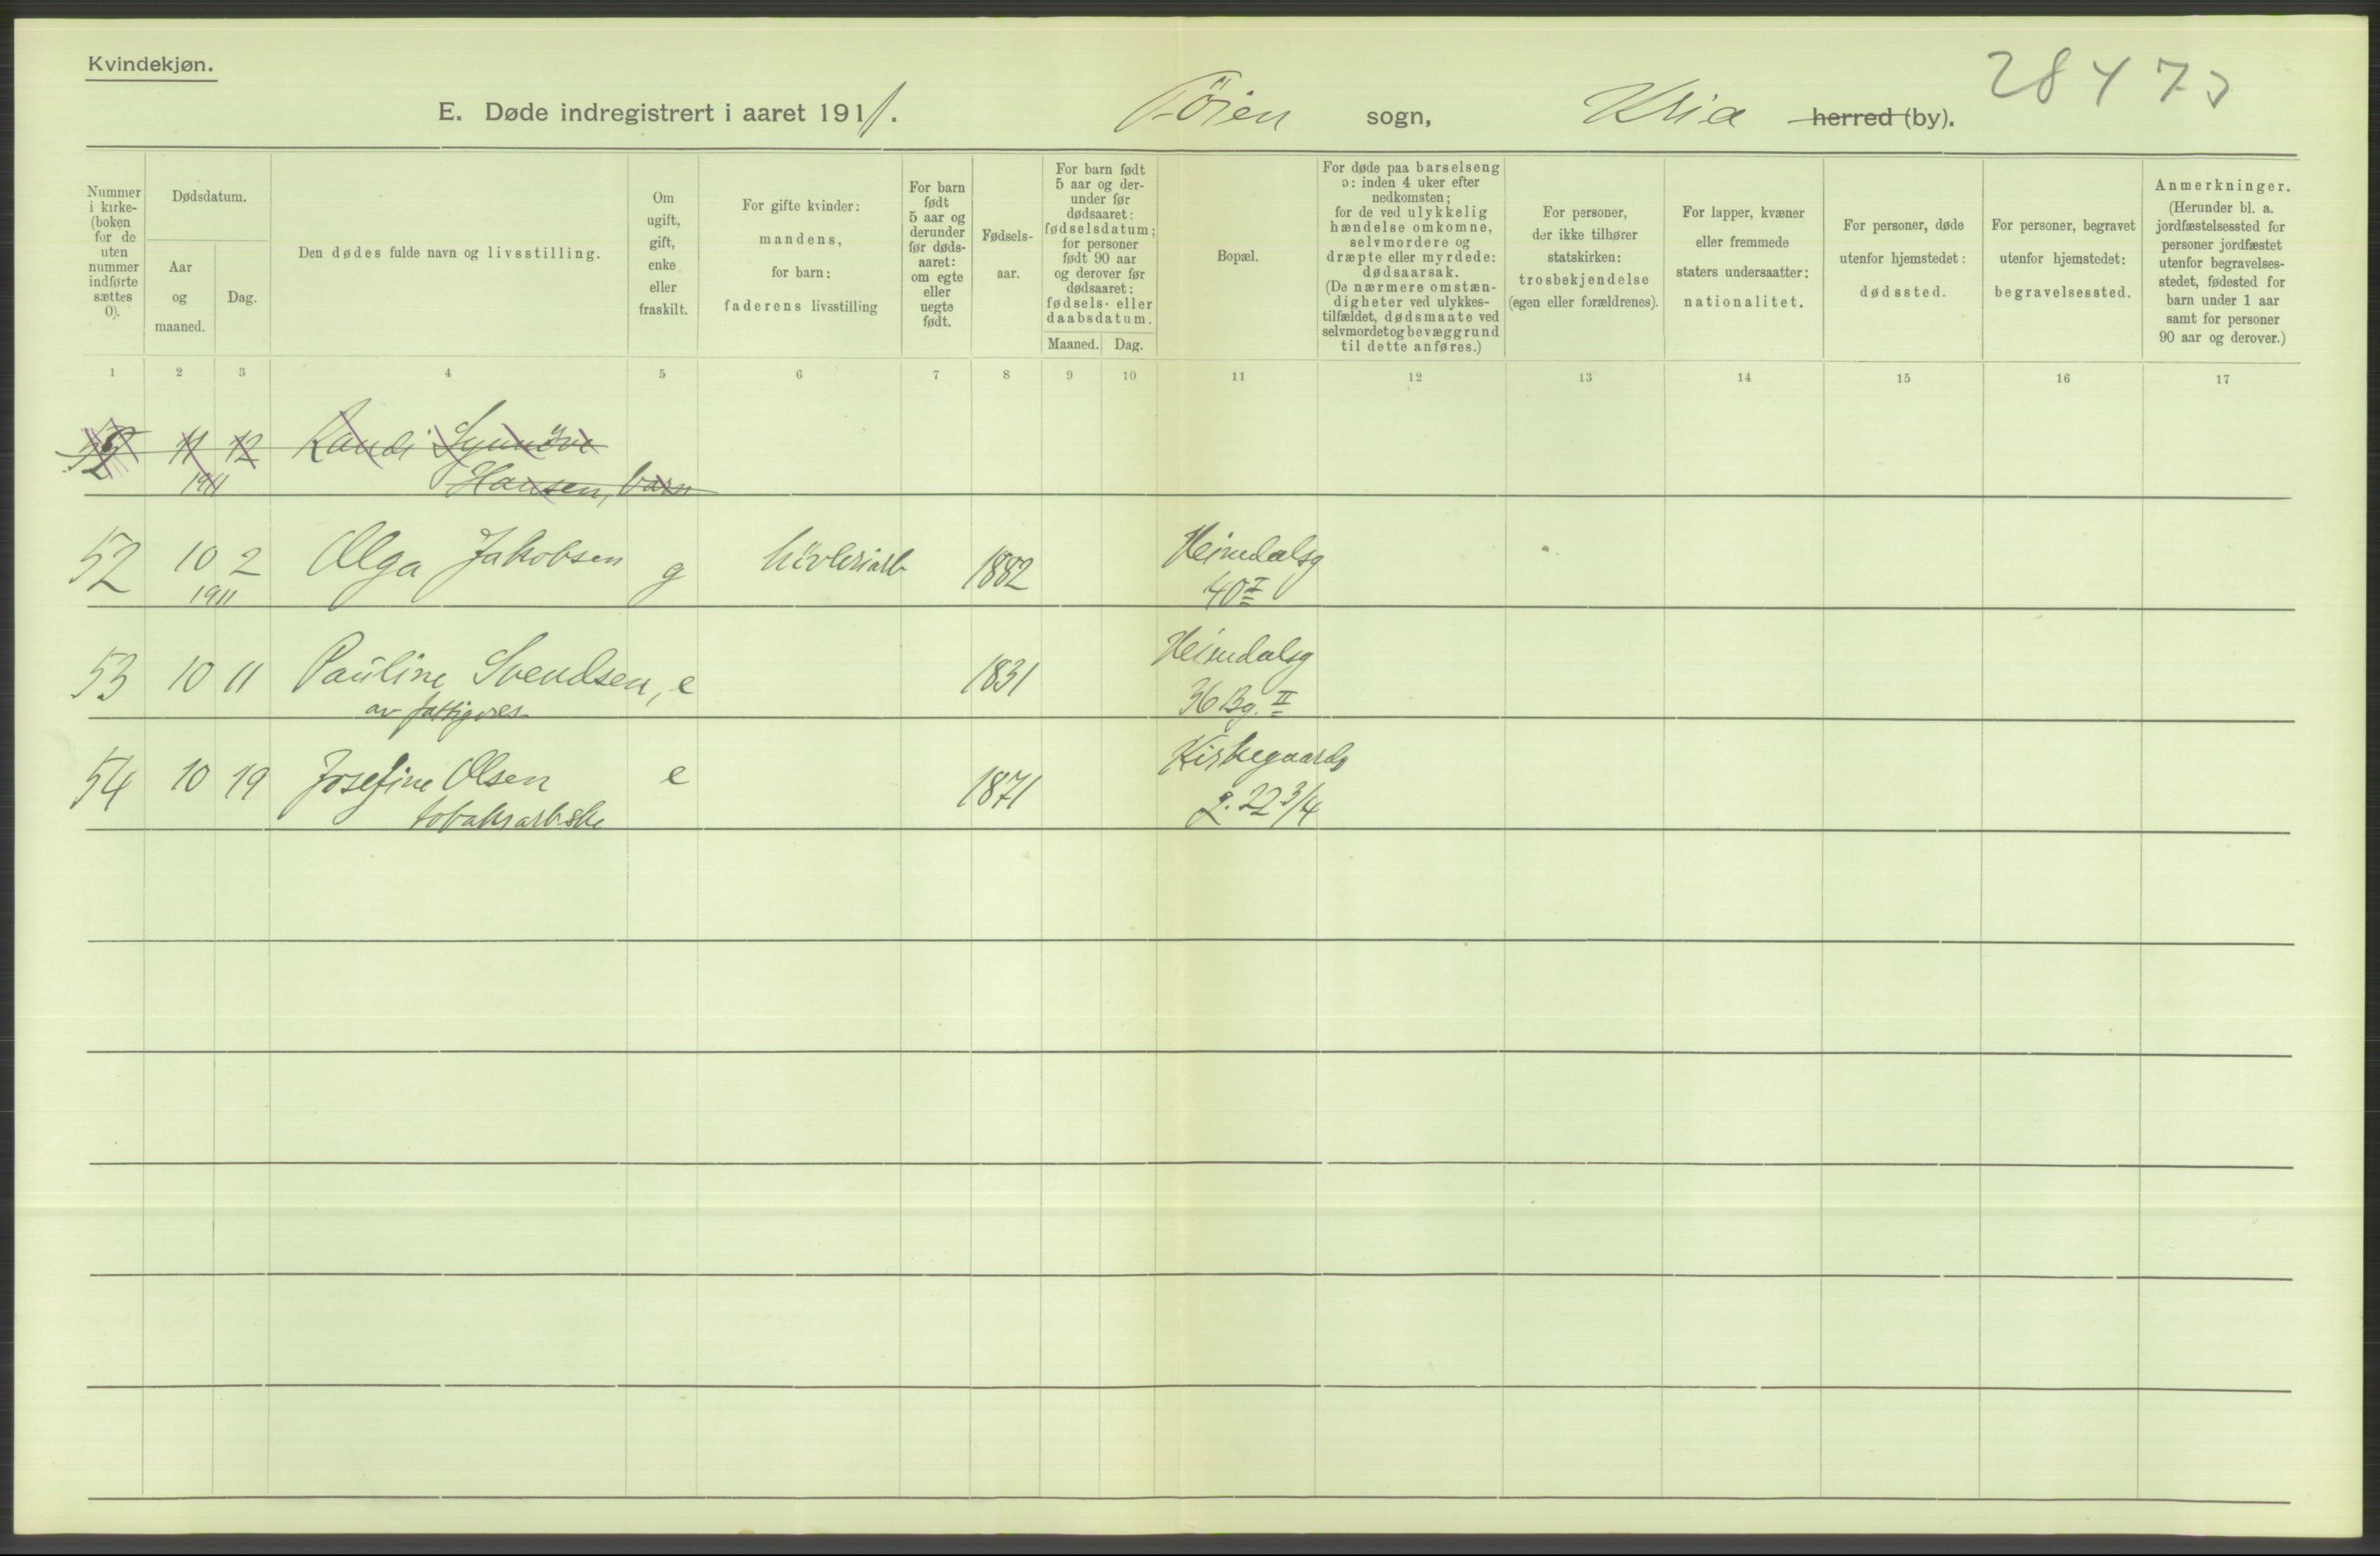 Kvindekjøn.
28473
E. Døde indregistrert i aaret 1911. Töien sogn, Kria herred (by).
Nummer i kirke- (boken for de uten nummer indførte sættes 0).
Dødsdatum.
Aar og maaned.
Dag.
Den dødes fulde navn og livsstilling.
Om ugift, gift, enke eller fraskilt.
For gifte kvinder: mandens, for barn: faderens livsstilling
For barn født 5 aar og derunder før døds- aaret: om egte eller uegte født.
Fødsels- aar.
For barn født 5 aar og der- under før dødsaaret: fødselsdatum; for personer født 90 aar og derover før dødsaaret: fødsels- eller daabsdatum.
Maaned. Dag.
Bopæl.
For døde paa barselseng ɔ: inden 4 uker efter nedkomsten; for de ved ulykkelig hændelse omkomne, selvmordere og dræpte eller myrdede: dødsaarsak. (De nærmere omstæn- digheter ved ulykkes- tilfældet, dødsmaate ved selvmordet og bevæggrund til dette anføres.)
For personer, der ikke tilhører statskirken: trosbekjendelse (egen eller forældrenes).
For lapper, kvæner eller fremmede staters undersaatter: nationalitet.
For personer, døde utenfor hjemstedet: dødssted.
For personer, begravet utenfor hjemstedet: begravelsessted.
Anmerkninger. (Herunder bl. a. jordfæstelsessted for personer jordfæstet utenfor begravelses- stedet, fødested for barn under 1 aar samt for personer 90 aar og derover.)
1 2 3 4 5 6 7 8 9 10 11 12 13 14 15 16 17
11 12 Randi Synnöve
1911 Hansen, barn
52 10 2 Olga Jakobsen g hövleriarb 1882 Heimdalsg
1911 40 I
53 10 11 Pauline Svendsen, e 1831 Heimdalsg
av fattigves. 36 Bg. II
54 10 19 Josefine Olsen e 1871 Kirkegaards
tobaksarb.ske g. 22 3/4